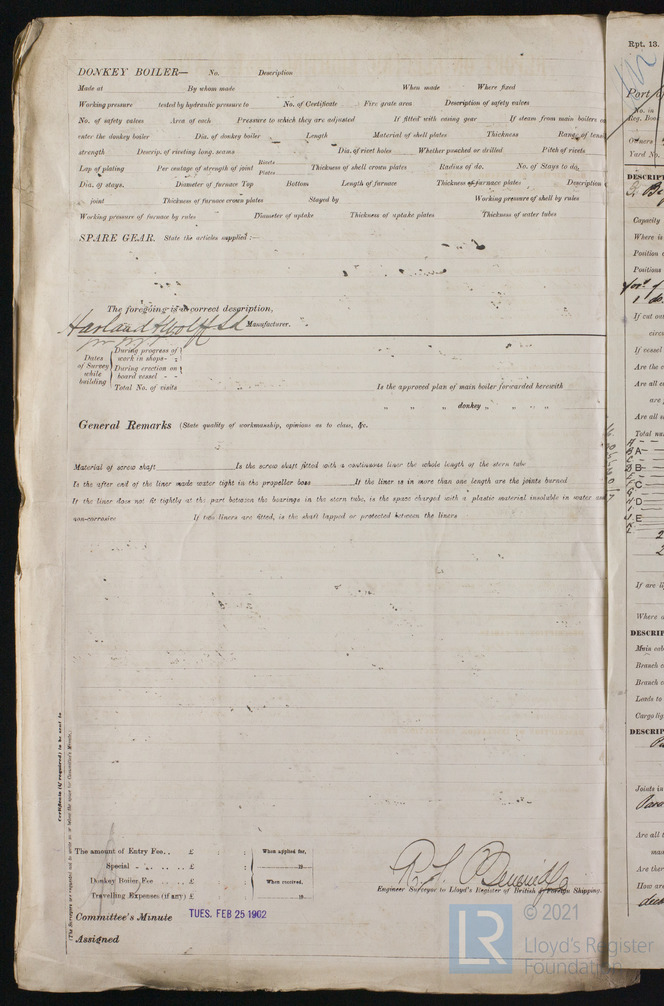 DONKEY BOILER— No. Description
Made at By whom made When made Where fixed
Working pressure tested by hydraulic pressure to No. of Certificate Fire grate area Description of safety valves
No. of safety valves Area of each Pressure to which they are adjusted If fitted with easing gear If steam from main boilers can
enter the donkey boiler Dia. of donkey boiler Length Material of shell plates Thickness Range of tensile
strength Descrip. of riveting long. seams Dia. of rivet holes Whether punched or drilled Pitch of rivets
Lap of plating Per centage of strength of joint Rivets Plates Thickness of shell crown plates Radius of do. No. of Stays to do.
Dia. of stays. Diameter of furnace Top Bottom Length of furnace Thickness of furnace plates Description
joint Thickness of furnace crown plates Stayed by Working pressure of shell by rules
Working pressure of furnace by rules Diameter of uptake Thickness of uptake plates Thickness of water tubes
SPARE GEAR. State the articles supplied:—
The foregoing is a correct description,
Harland & Wolff Ld Manufacturer.
Dates of Survey while building
During progress of work in shops - -
During erection on board vessel - -
Total No. of visits
Is the approved plan of main boiler forwarded herewith
" " " donkey " " " "
General Remarks (State quality of workmanship, opinions as to class, &c.
Material of screw shaft Is the screw shaft fitted with a continuous liner the whole length of the stern tube
Is the after end of the liner made water tight in the propeller boss If the liner is in more than one length are the joints burned
If the liner does not fit tightly at the part between the bearings in the stern tube, is the space charged with a plastic material insoluble in water and
non-corrosive If two liners are fitted, is the shaft lapped or protected between the liners
Certificate (if required) to be sent to
The amount of Entry Fee.. £ : : When applied for,
Special . . . . . £ : : 19
Donkey Boiler Fee . . . . . £ : : When received.
Travelling Expenses (if any) £ : : 19
Engineer Surveyor to Lloyd's Register of British & Foreign Shipping.
Committee's Minute TUES. FEB 25 1902
Assigned
Rpt. 13.
Port
No. in
Reg. Boo
Owners
Yard No.
DESCRIPT
Capacity
Where is
Position o
Positions
If cut ou
circu
If vessel
Are the c
Are all s
are
Are all s
Total nu
A
B
C
D
E
If are li
Where a
DESCRIP
Main cab
Branch c
Branch c
Leads to
Cargo lig
DESCRIP
Joints in
Are all t
ma
Are ther
How are
LR
© 2021
Lloyd's Register
Foundation